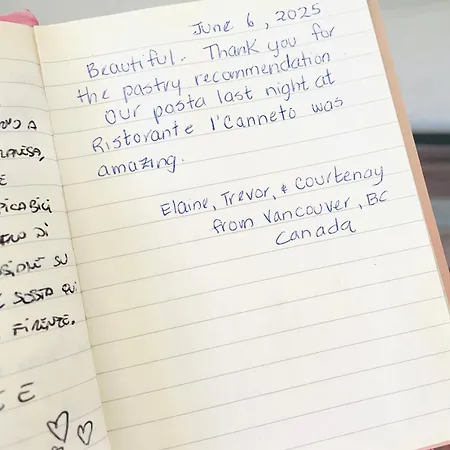 June 6, 2025
Beautiful. Thank you for
the pastry recommendation
Our posta last night at
Ristorante l'Canneto was
amazing.
Elaine, Trevor, & Courtenay
from Vancouver, BC
Canada
A
E
DI
SU
FIRENZE.
E E